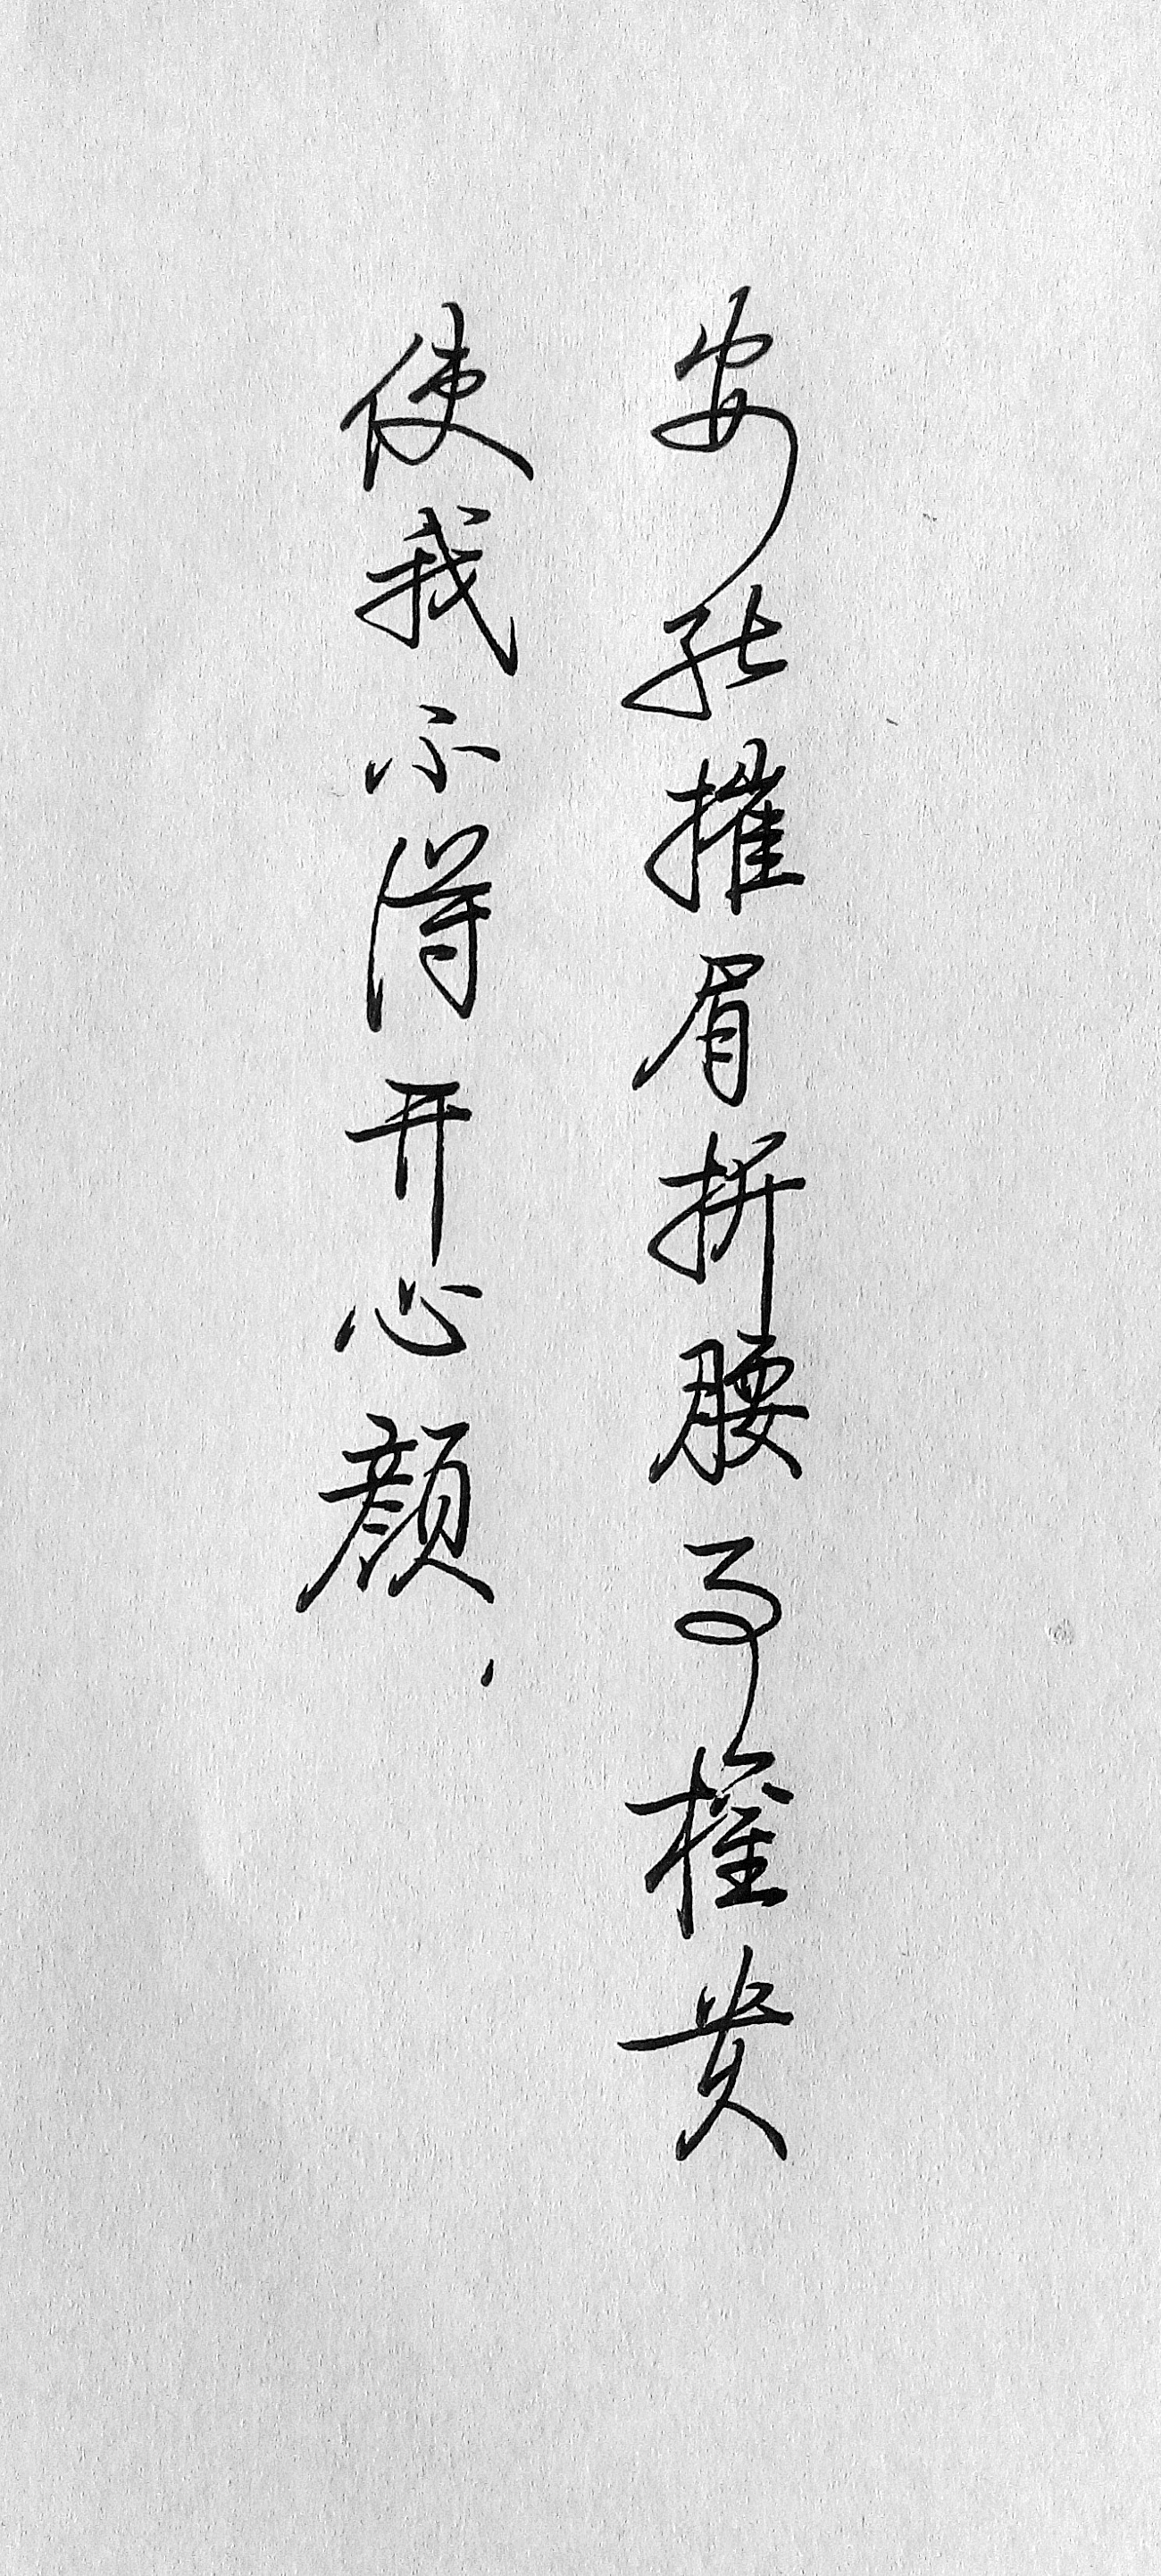 安能摧眉折腰事权贵
使我不得开心颜.